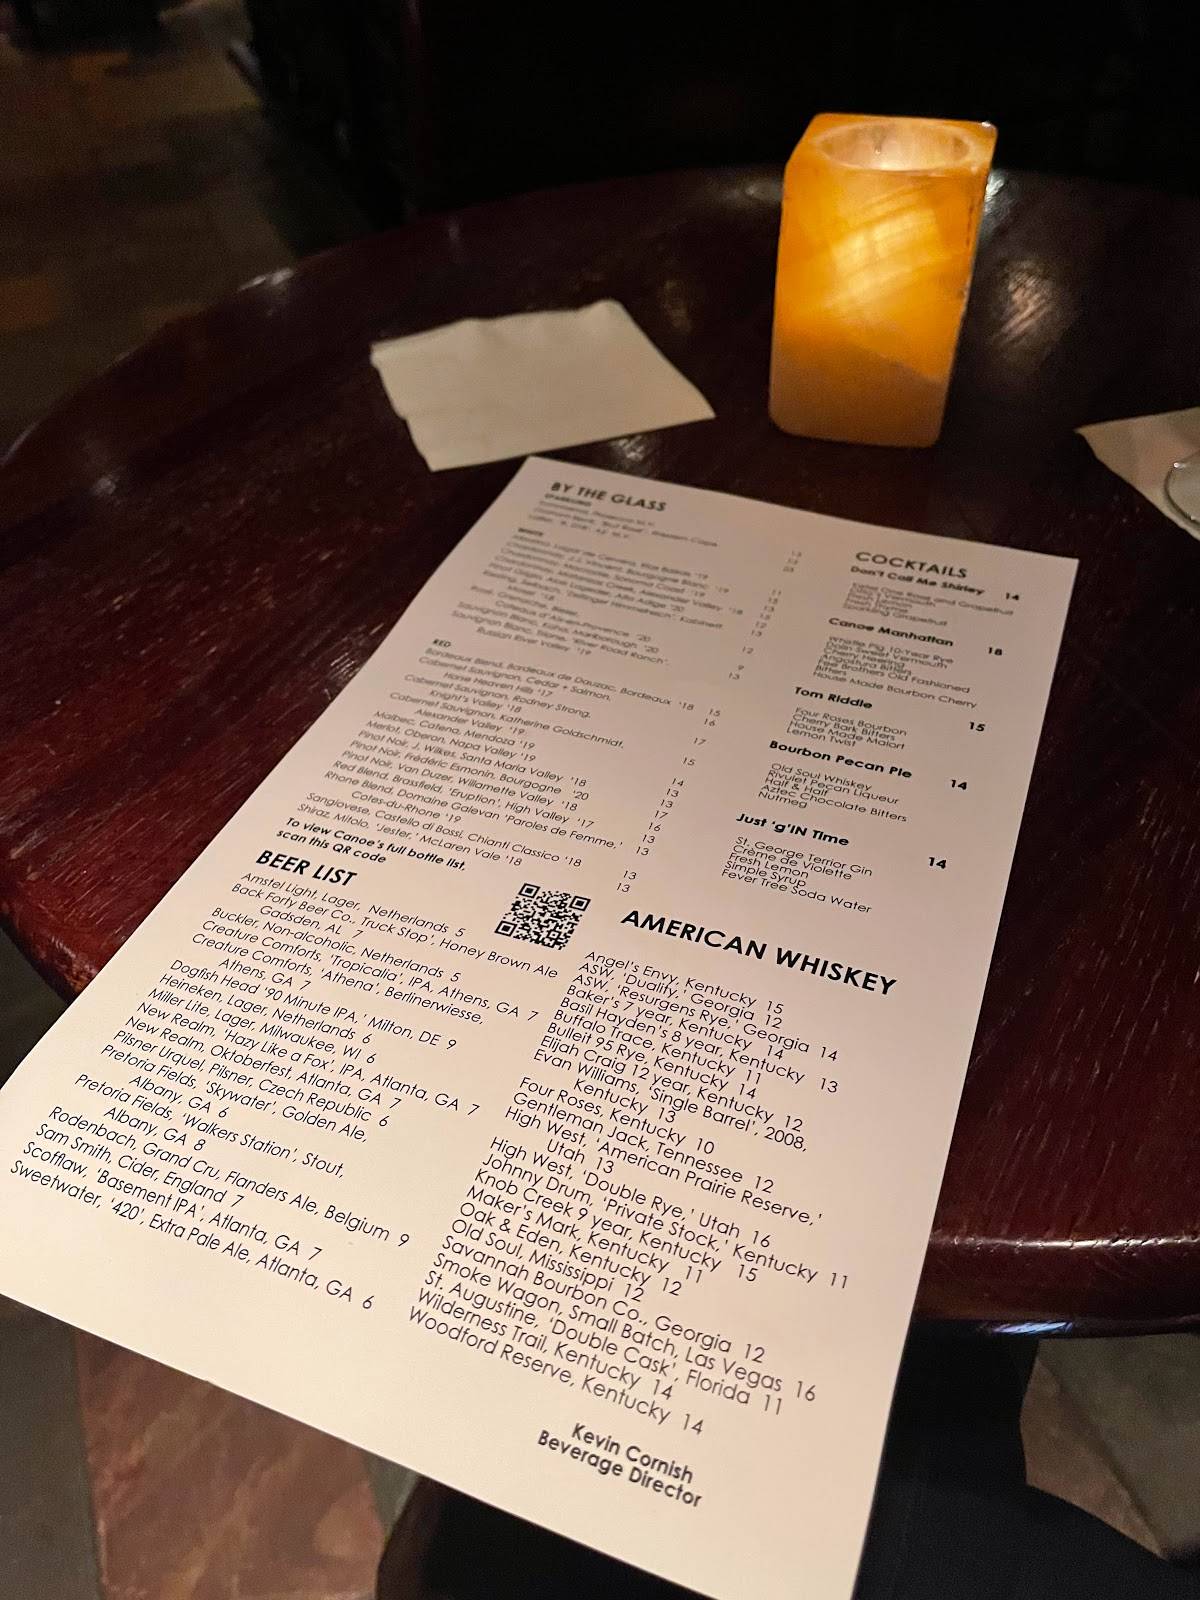 BY THE GLASS
SPARKLING
WHITE
Albariño, Lagar de Cervera, Rías Baixas '19
Chardonnay, J.J. Vincent, Bourgogne Blanc '19
Rosé, Grenache, Bieler,
Coteaux d'Aix-en-Provence '20 9
Sauvignon Blanc, Kono, Marlborough '20
Sauvignon Blanc, Trione, 'River Road Ranch', 13
Russian River Valley '19
RED
Bordeaux Blend, Bordeaux de Dauzac, Bordeaux '18 15
Cabernet Sauvignon, Cedar + Salmon, 16
Horse Heaven Hills '17
Cabernet Sauvignon, Rodney Strong,
Knight's Valley '18 17
Cabernet Sauvignon, Katherine Goldschmidt,
Alexander Valley '19 15
Malbec, Catena, Mendoza '19
Merlot, Oberon, Napa Valley '19 14
Pinot Noir, J. Wilkes, Santa Maria Valley '18 13
Pinot Noir, Frédéric Esmonin, Bourgogne '20 13
Pinot Noir, Van Duzer, Willamette Valley '18 17
Red Blend, Brassfield, 'Eruption', High Valley '17 16
Rhone Blend, Domaine Galevan 'Paroles de Femme,' 13
Cotes-du-Rhone '19 13
Sangiovese, Castello di Bossi, Chianti Classico '18 13
Shiraz, Mitolo, 'Jester,' McLaren Vale '18 13
To view Canoe's full bottle list,
scan this QR code
BEER LIST
Amstel Light, Lager, Netherlands 5
Back Forty Beer Co., Truck Stop', Honey Brown Ale
Gadsden, AL 7
Buckler, Non-alcoholic, Netherlands 5
Creature Comforts, 'Tropicalia', IPA, Athens, GA 7
Creature Comforts, 'Athena', Berlinerwiesse,
Athens, GA 7
Dogfish Head '90 Minute IPA,' Milton, DE 9
Heineken, Lager, Netherlands 6
Miller Lite, Lager, Milwaukee, WI 6
New Realm, 'Hazy Like a Fox', IPA, Atlanta, GA 7
New Realm, Oktoberfest, Atlanta, GA 7
Pilsner Urquel, Pilsner, Czech Republic 6
Pretoria Fields, 'Skywater', Golden Ale,
Albany, GA 6
Pretoria Fields, 'Walkers Station', Stout,
Albany, GA 8
Rodenbach, Grand Cru, Flanders Ale, Belgium 9
Sam Smith, Cider, England 7
Scofflaw, 'Basement IPA', Atlanta, GA 7
Sweetwater, '420', Extra Pale Ale, Atlanta, GA 6
COCKTAILS
Don't Call Me Shirley 14
Ketel One Rose and Grapefruit
Fresh Lemon
Fresh Thyme
Sparkling Grapefruit
Canoe Manhattan 18
Whistle Pig 10-Year Rye
Dolin Sweet Vermouth
Cherry Heering
Angostura Bitters
Fee Brothers Old Fashioned
Bitters
House Made Bourbon Cherry
Tom Riddle 15
Four Roses Bourbon
Cherry Bark Bitters
House Made Malort
Lemon Twist
Bourbon Pecan Pie 14
Old Soul Whiskey
Rivulet Pecan Liqueur
Half & Half
Aztec Chocolate Bitters
Nutmeg
Just 'g'IN Time 14
St. George Terrior Gin
Crème de Violette
Fresh Lemon
Simple Syrup
Fever Tree Soda Water
AMERICAN WHISKEY
Angel's Envy, Kentucky 15
ASW, 'Duality,' Georgia 12
ASW, 'Resurgens Rye,' Georgia 14
Baker's 7 year, Kentucky 14
Basil Hayden's 8 year, Kentucky 13
Buffalo Trace, Kentucky 11
Bulleit 95 Rye, Kentucky 14
Elijah Craig 12 year, Kentucky 12
Evan Williams, 'Single Barrel', 2008,
Kentucky 13
Four Roses, Kentucky 10
Gentleman Jack, Tennessee 12
High West, 'American Prairie Reserve,'
Utah 13
High West, 'Double Rye,' Utah 16
Johnny Drum, 'Private Stock,' Kentucky 11
Knob Creek 9 year, Kentucky 15
Maker's Mark, Kentucky 11
Oak & Eden, Kentucky 12
Old Soul, Mississippi 12
Savannah Bourbon Co., Georgia 12
Smoke Wagon, Small Batch, Las Vegas 16
St. Augustine, 'Double Cask', Florida 11
Wilderness Trail, Kentucky 14
Woodford Reserve, Kentucky 14
Kevin Cornish
Beverage Director